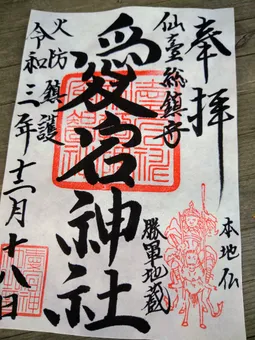 奉拝
本地仏
仙臺総鎮守
勝軍地蔵
愛宕神社
火防鎮護
令和三年十二月十八日